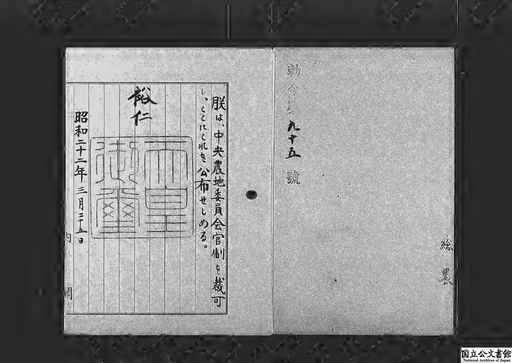 勅令第九十五號
朕は、中央農地委員会官制を裁可
し、ここにこれを公布せしめる。
裕仁
天皇御璽
昭和二十二年三月二十五日
内閣
国立公文書館
National Archives of Japan